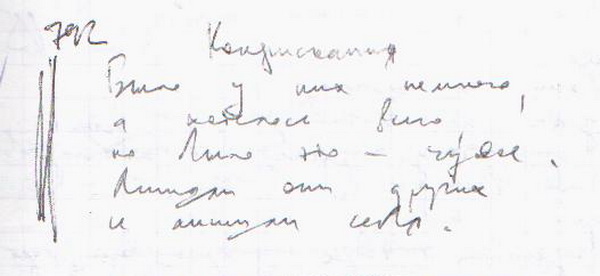 792
Конфискация
Было у них немного,
а хотелось всего
но было это — чужое.
Лишали они других
и лишали себя.